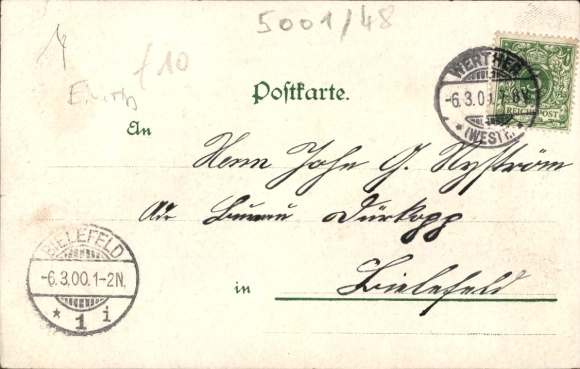 5001/48
£10
WERTHER
-6.3.00.
(WESTF.)
REICHSPOST
Postkarte.
An
Herrn John G. Nyström
Adr Bureau Dürkopp
in Bielefeld
BIELEFELD
-6.3.00.1-2N.
* 1 i